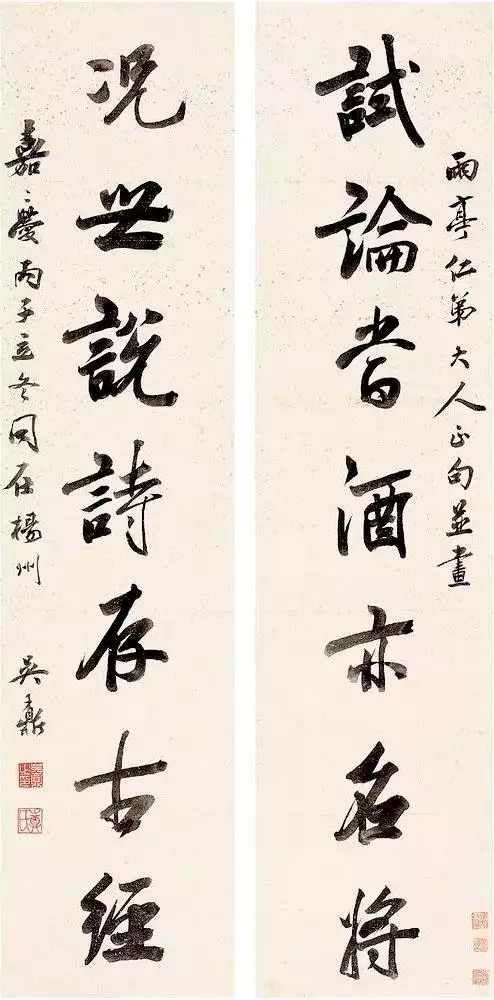 雨亭仁弟大人正句並書
試論嘗酒亦名將
況世說詩存古經
嘉慶丙子立冬同在揚州
吳鼒